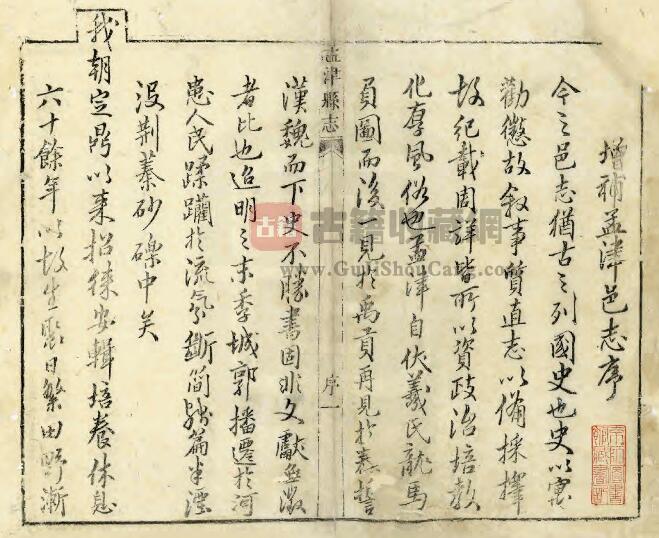 增補孟津邑志序
今之邑志猶古之列國史也史以寓
勸懲故叙事質直志以備採擇
故紀載周詳皆所以資政治培教
化厚風俗也孟津自伏羲氏龍馬
負圖而後一見於禹貢再見於泰誓
孟津縣志
序
一
漢魏而下史不勝書固非文獻無徵
者比也迨明之末季城郭播遷於河
患人民蹂躪於流氛斷簡殘篇半湮
沒荆蓁砂磧中矣
我朝定鼎以来招徠安輯培養休息
六十餘年以故生聚日繁田野漸
古籍收藏網
www.GujiShouCang.com